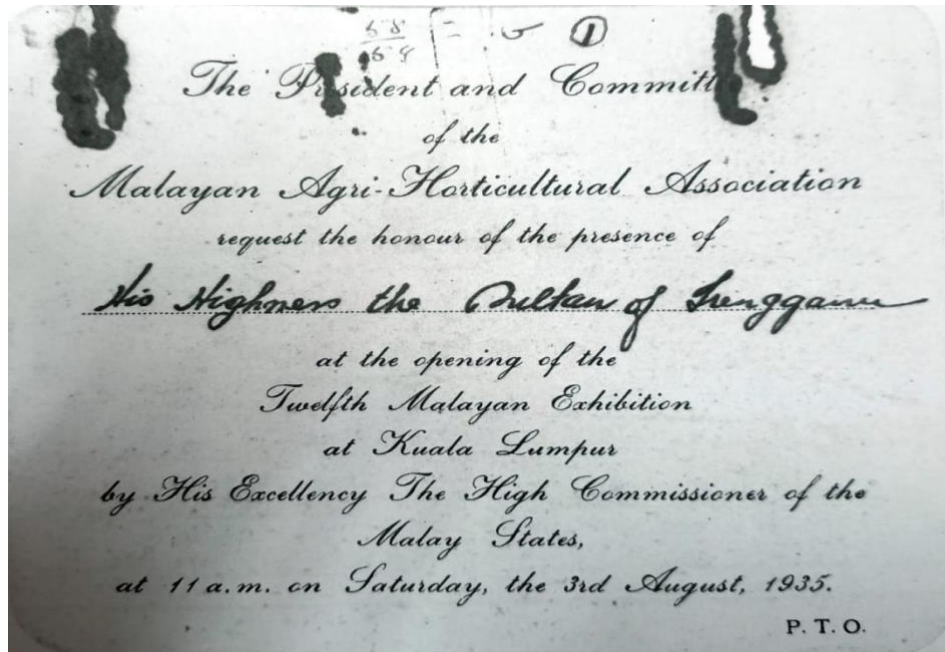 58
①
The President and Committ
of the
Malayan Agri-Horticultural Association
request the honour of the presence of
His Highness the Sultan of Trengganu
at the opening of the
Twelfth Malayan Exhibition
at Kuala Lumpur
by His Excellency The High Commissioner of the
Malay States,
at 11 a.m. on Saturday, the 3rd August, 1935.
P. T. O.